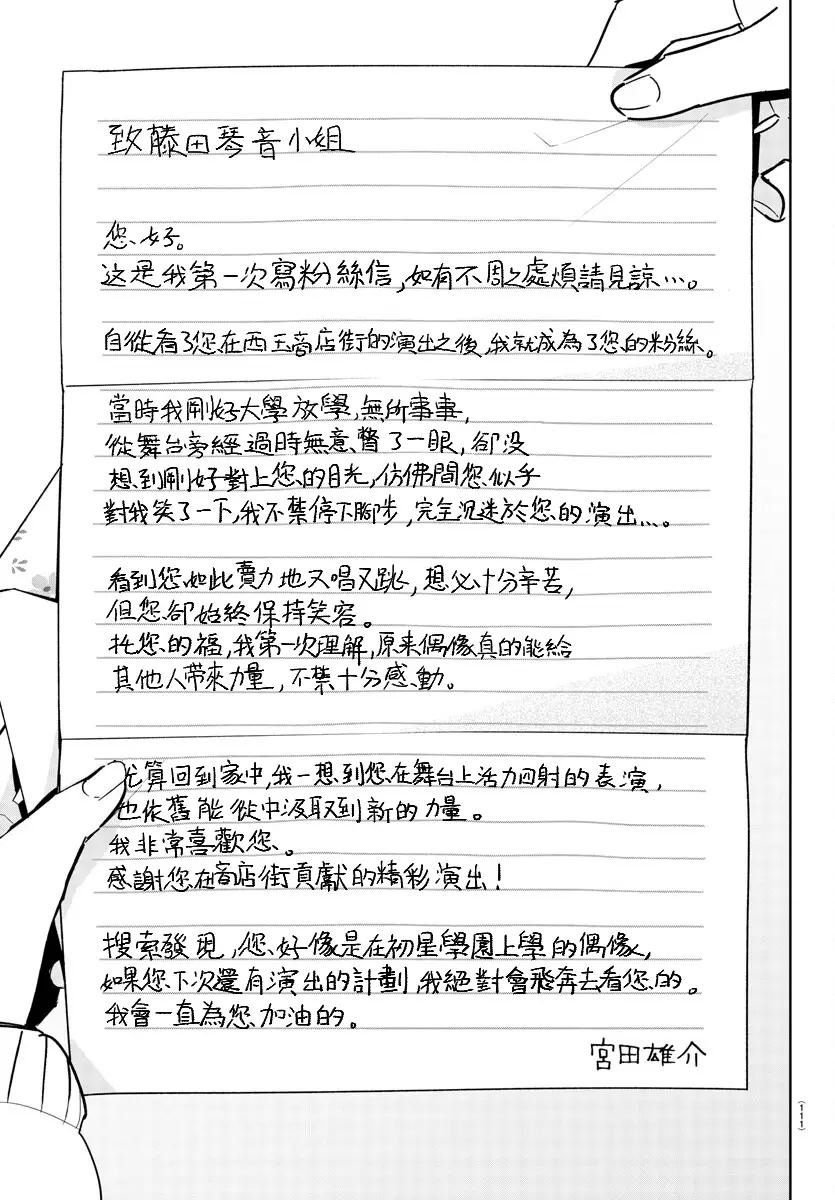 致藤田琴音小姐
您好。
这是我第一次寫粉絲信，如有不周之處煩請見諒…。
自從看了您在西玉商店街的演出之後，我就成為了您的粉絲。
當時我剛好大學放學，無所事事，
從舞台旁經過時無意瞥了一眼，卻没
想到剛好對上您的目光，仿佛間您似乎
對我笑了一下，我不禁停下腳步，完全沉迷於您的演出…。
看到您如此賣力地又唱又跳，想必十分辛苦，
但您卻始終保持笑容。
托您的福，我第一次理解，原来偶像真的能給
其他人帶來力量，不禁十分感動。
光算回到家中，我一想到您在舞台上活力四射的表演，
也依舊能從中汲取到新的力量。
我非常喜歡您。
感謝您在商店街貢獻的精彩演出！
搜索發現，您好像是在初星學園上學的偶像，
如果您下次還有演出的計劃，我絕對會飛奔去看您的。
我會一直為您加油的。
宮田雄介
111